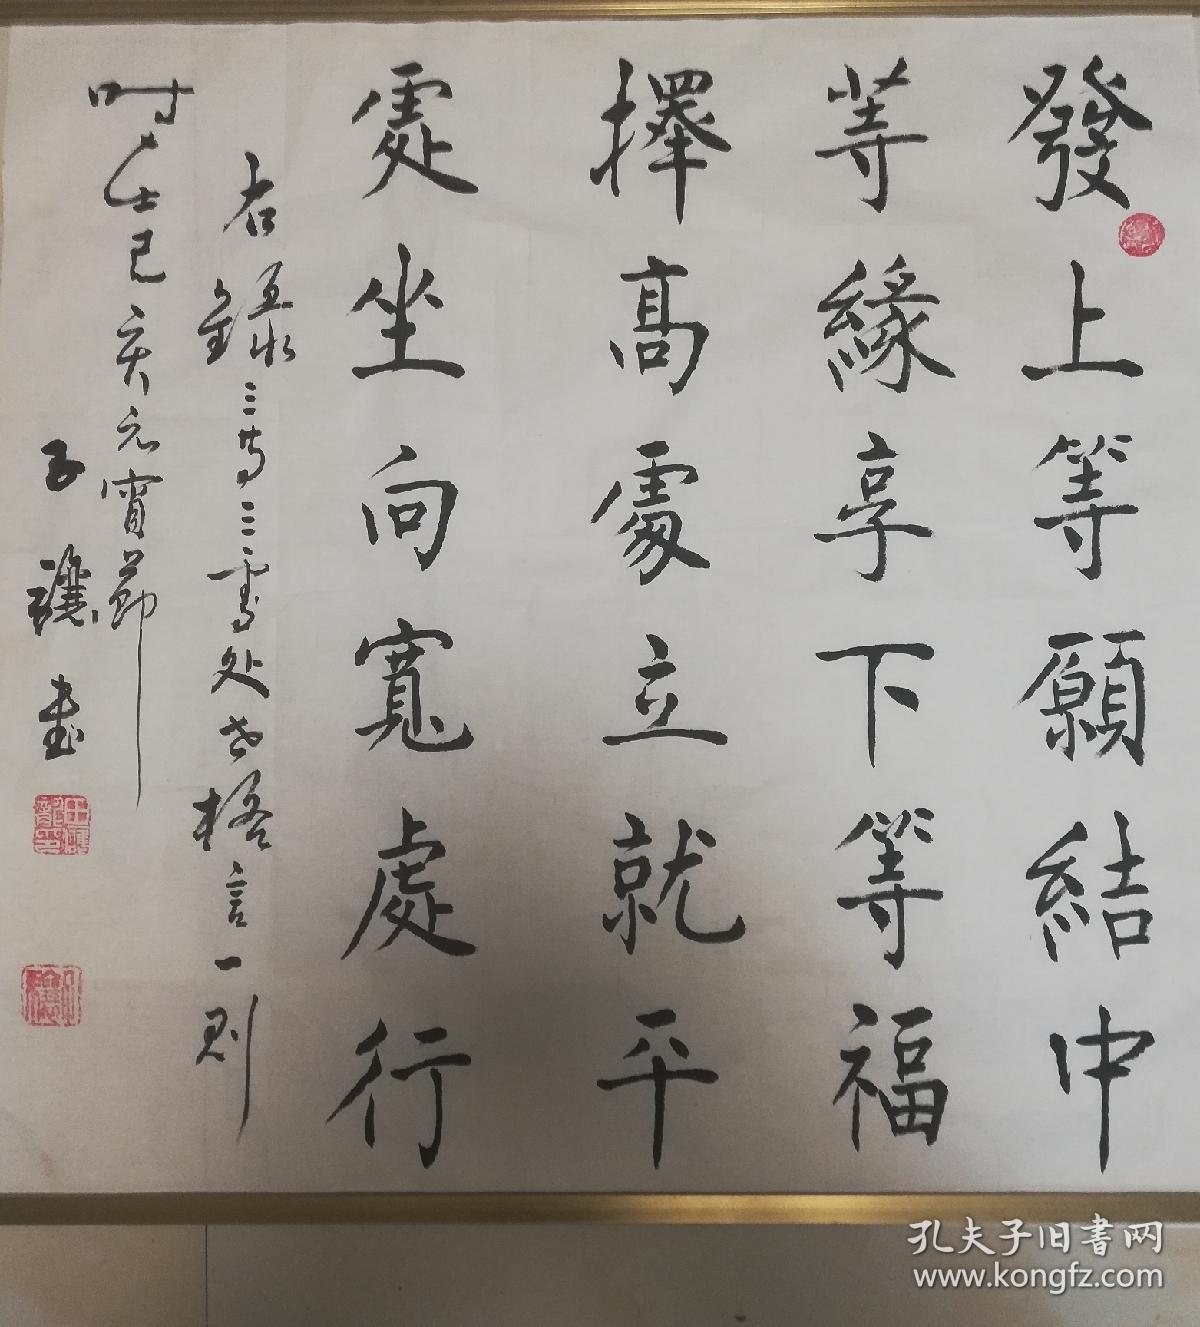 發上等願結中
等緣享下等福
擇高處立就平
處坐向寬處行
右錄三等三處处世格言一则
时在己亥元宵節
子 書
孔夫子旧書网
www.kongfz.com